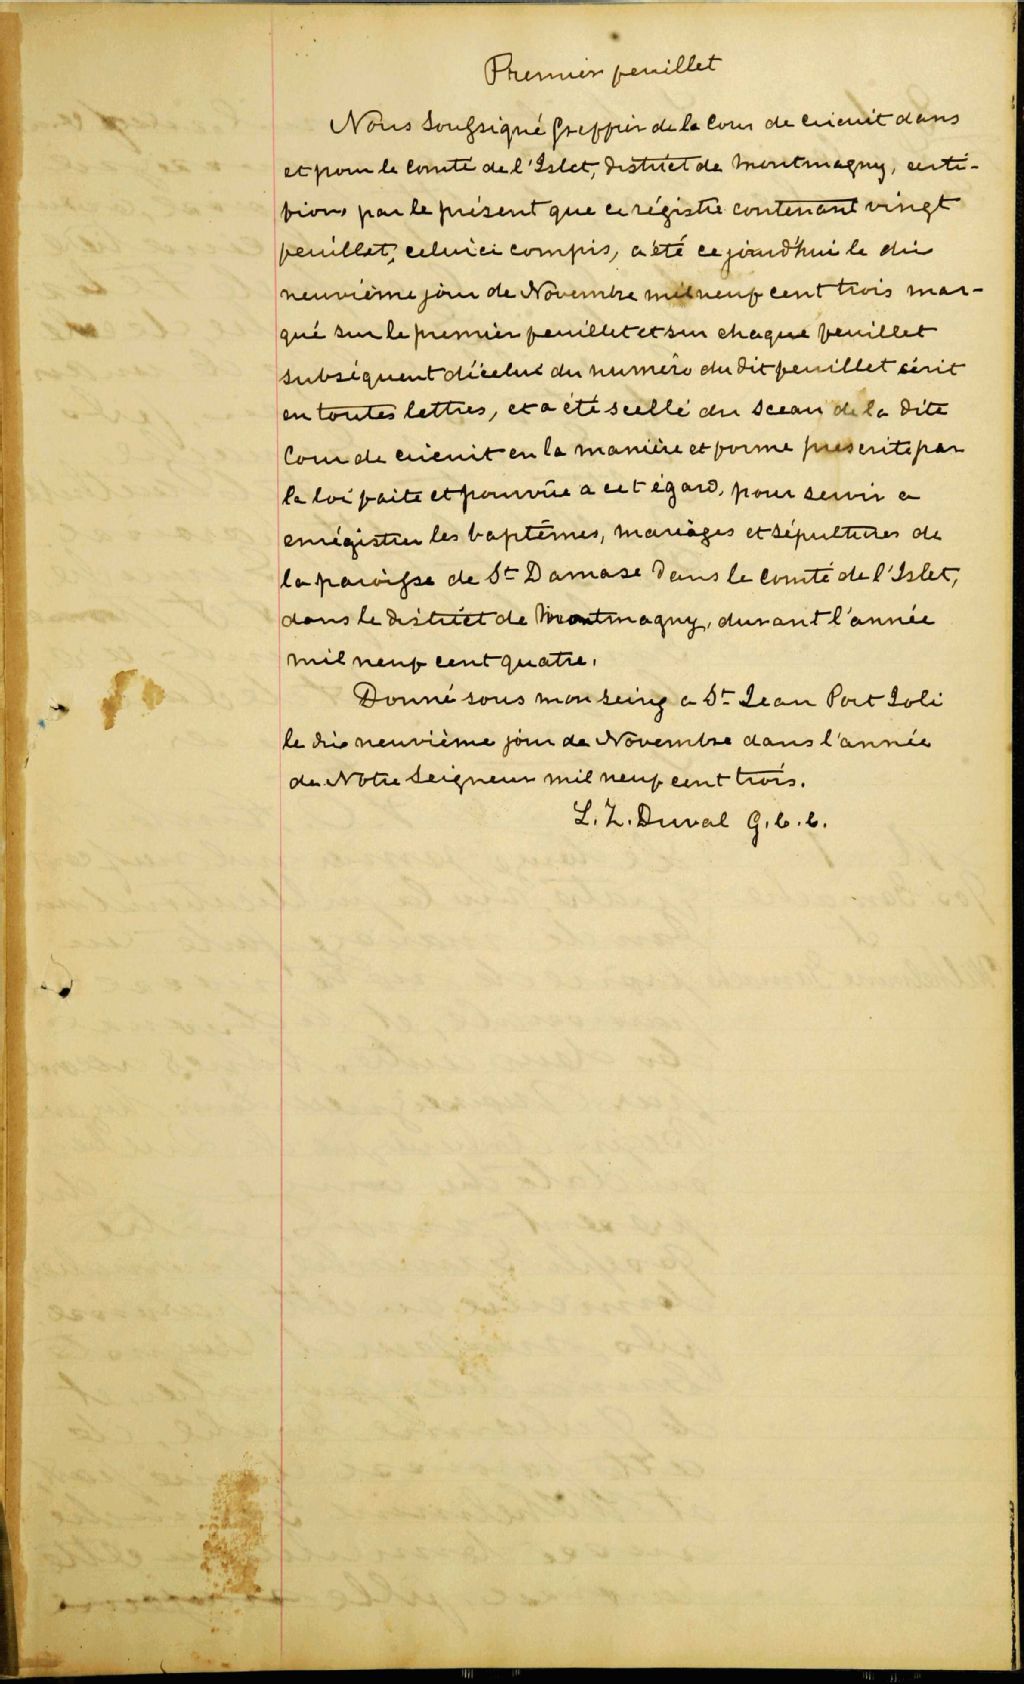 Premier feuillet
Nous Soussigné Greffier de la Cour de circuit dans
et pour le Comté de l'Islet, district de Montmagny, certi-
fions par le présent que ce régistre contenant vingt
feuillet, celui ci compis, a été ce jourd'hui le dix
neuvième jour de Novembre mil neuf cent trois mar-
qué sur le premier feuillet et sur chaque feuillet
subséquent d'icelui du numéro du dit feuillet écrit
en toutes lettres, et a été scellé du Sceau de la dite
Cour de circuit en la manière et forme prescrite par
la loi faite et pourvûe a cet égard, pour servir a
enrégistrer les baptêmes, mariages et sépultures de
la paroisse de St Damase dans le Comté de l'Islet,
dans le district de Montmagny, durant l'année
mil neuf cent quatre.
Donné sous mon seing a St Jean Port Joli
le dix neuvième jour de Novembre dans l'année
de Notre Seigneur mil neuf cent trois.
L. Z. Duval G. C. C.